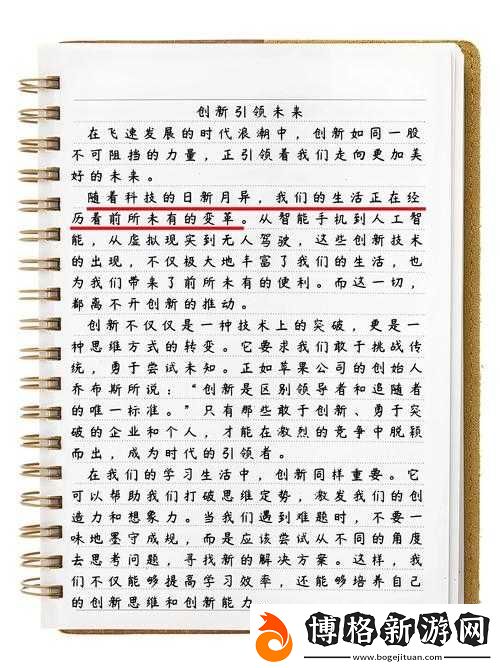 创新引领未来
在飞速发展的时代浪潮中，创新如同一股
不可阻挡的力量，正引领着我们走向更加
美好的未来。
随着科技的日新月异，我们的生活正在经
历着前所未有的变革。从智能手机到人工智
能，从虚拟现实到无人驾驶，这些创新技术
的出现，不仅极大地丰富了我们的生活，也
为我们带来了前所未有的便利。而这一切，
都离不开创新的推动。
创新不仅仅是一种技术上的突破，更是一
种思维方式的转变。它要求我们敢于挑战传
统，勇于尝试未知。正如苹果公司的创始人
乔布斯所说：“创新是区别领导者和追随者
的唯一标准。”只有那些敢于创新、勇于突
破的企业和个人，才能在激烈的竞争中脱颖
而出，成为时代的引领者。
在我们的学习生活中，创新同样重要。它
可以帮助我们打破思维定势，激发我们的创
造力和想象力。当我们遇到难题时，不要一
味地墨守成规，而是应该尝试从不同的角度
去思考问题，寻找新的解决方案。这样，我
们不仅能够提高学习效率，还能够培养自己
的创新思维和创新能力
博格新游网
www.bogejituan.com